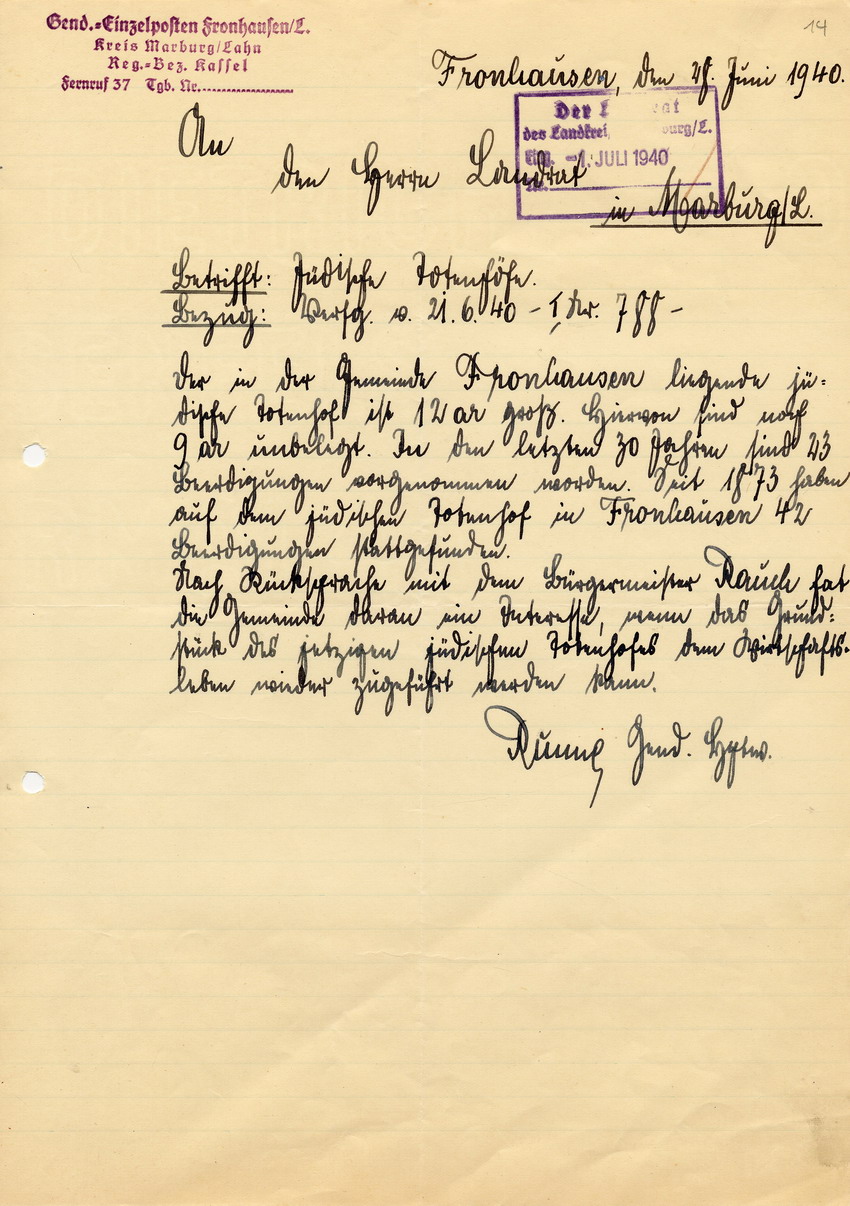 14
Gend.-Einzelposten Fronhausen/L.
Kreis Marburg/Lahn
Reg.-Bez. Kassel
Fernruf 37 Tgb. Nr.
Fronhausen, den 28. Juni 1940.
Der L at
des Landkrei urg/L.
Eing. -1. JULI 1940
An
den Herrn Landrat
in Marburg/L.
Betrifft: Jüdische Totenhöfe.
Bezug: Verfg. v. 21.6.40 - I, Nr. 788 -
Der in der Gemeinde Fronhausen liegende jü-
dische Totenhof ist 12 ar groß. Hiervon sind noch
9 ar unbelegt. In den letzten 30 Jahren sind 23
Beerdigungen vorgenommen worden. Seit 1873 haben
auf dem jüdischen Totenhof in Fronhausen 42
Beerdigungen stattgefunden.
Nach Rücksprache mit dem Bürgermeister Rauch hat
die Gemeinde daran ein Interesse, wenn das Grund-
stück des jetzigen jüdischen Totenhofes dem Wirtschafts-
leben wieder zugeführt werden kann.
Gend. Hptw.